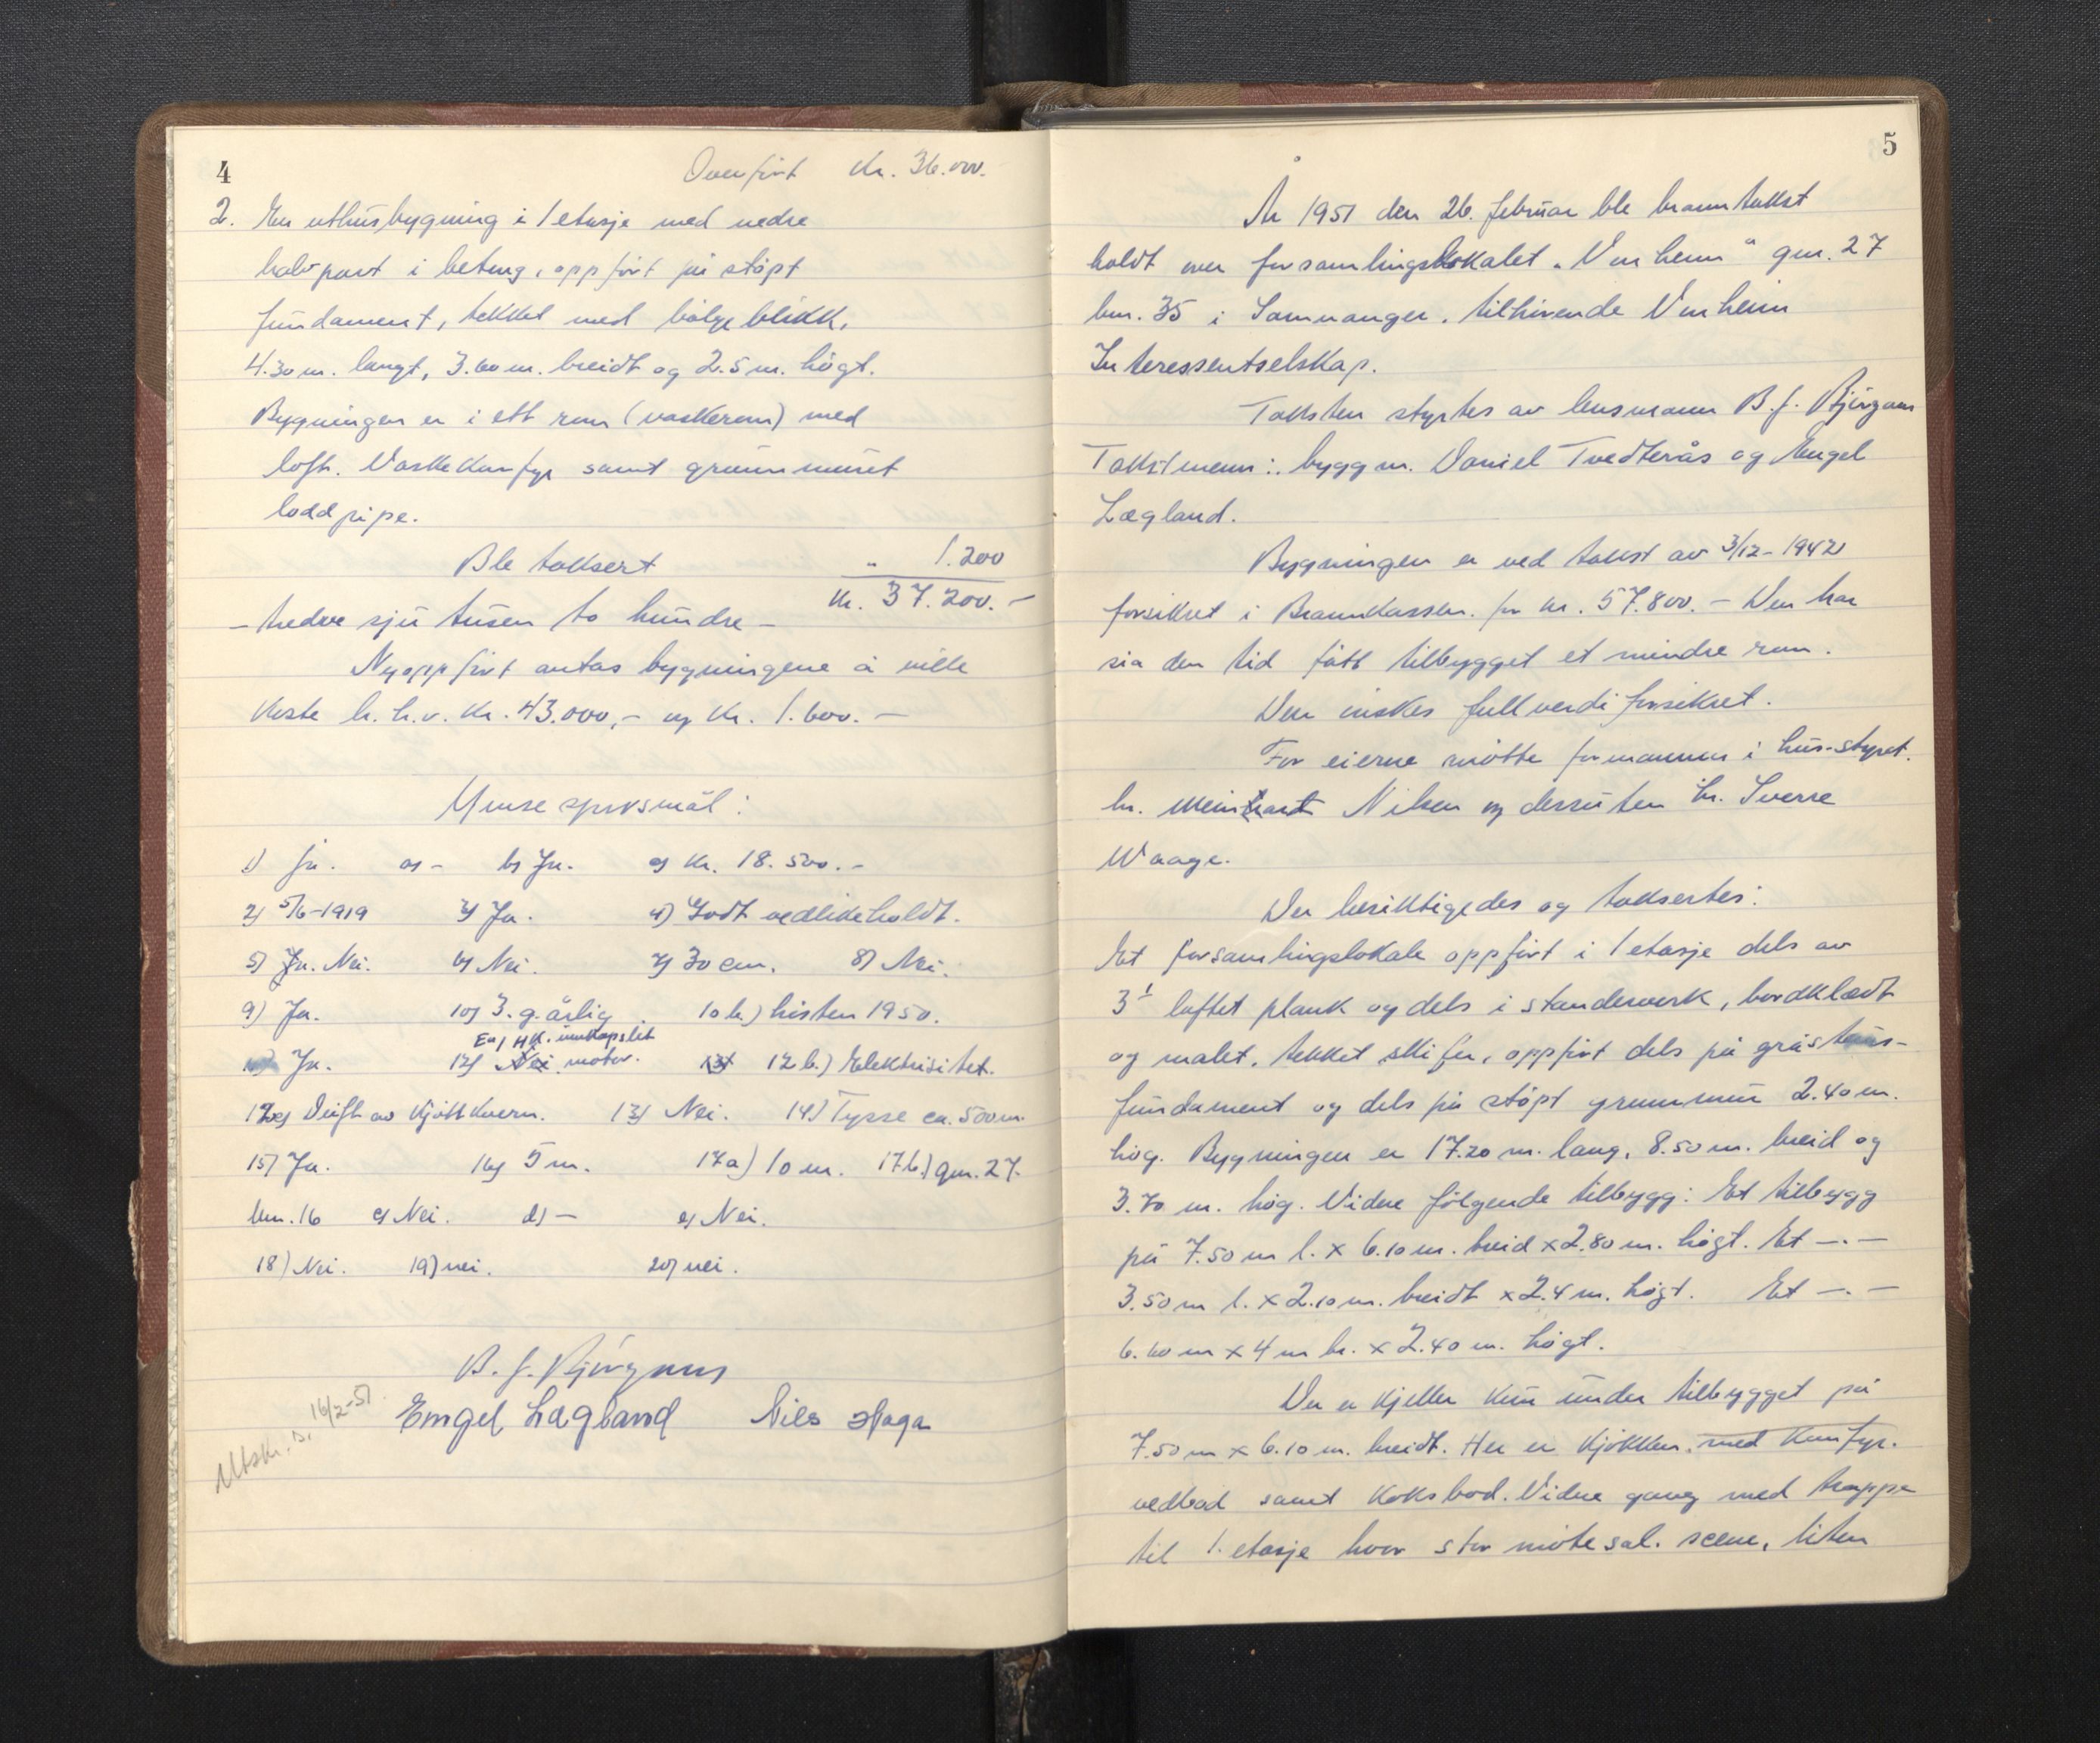 4
Overført Kr. 36.000.-
2. En uthusbygning i 1 etasje med nedre
halvpart i betong, oppført på støpt
fundament, tekket med bølgeblikk,
4.30 m. langt, 3.60 m. breidt og 2.5 m. högt.
Bygningen er i ett rom (vaskerom) med
loft. Vaskekomfyr samt grunnmuret
loddpipe.
Ble taksert " 1.200
Kr. 37.200.-
- tredve sju tusen to hundre -
Nyoppført antas bygningene å ville
koste h.h.v. Kr. 43.000,- og Kr. 1.600.-
Ymse spörsmål:
1) ja. a) - b) Ja. c) Kr. 18.500.-
2) 5/6-1919 3) Ja. 4) Godt vedlikeholdt.
5) Ja. Nei. 6) Nei. 7) 30 cm. 8) Nei.
9) Ja. 10) 3. g. årlig. 10 b.) hösten 1950.
En 1 HK. innkapslet
11) Ja. 12) Nei motor. 13) 12 b.) Elektrisitet.
12c) Drift av Kjöttkvern. 13) Nei. 14) Tysse ca. 500 m.
15) Ja. 16) 5 m. 17a) 10 m. 17b.) gnr. 27.
bnr. 16 c) Nei. d) - e) Nei.
18) Nei. 19) nei. 20) nei.
B. J. Björgum
Engel Lægland Nils Haga
Utskr. s. 16/2-51.
5
År 1951 den 26. februar ble branntakst
holdt over forsamlingslokalet "Vonheim" gnr. 27
bnr. 35 i Samnanger, tilhörende Vonheim
Interessentselskap.
Taksten styrtes av lensmann B. J. Björgum
Takstmenn: byggm. Daniel Tvedterås og Engel
Lægland.
Bygningen er ved takst av 3/12-1942
forsikret i Brannkassen for kr. 57.800.- Den har
sia den tid fått tilbygget et mindre rom.
Den önskes fullverdiforsikret.
For eierne mötte formannen i hus-styret.
hr. Meinhardt Nilsen og dessuten hr. Sverre
Waage.
Der besiktigedes og taksertes:
Et forsamlingslokale oppfört i 1 etasje dels av
3" laftet plank og dels i standerverk, bordklædt
og malet, tekket skifer, oppfört dels på gråsteins-
fundament og dels på støpt grunnmur 2.40 m.
høg. Bygningen er 17.20 m. lang, 8.50 m. breid og
3.70 m. høg. Videre følgende tilbygg: Et tilbygg
på 7.50 m l. x 6.10 m. breid x 2.80 m. högt. Et -.-
3.50 m l. x 2.10 m. breidt x 2.4 m. högt. Et -.-
6.60 m x 4 m br. x 2.40 m. högt.
Der er kjeller kun under tilbygget på
7.50 m x 6.10 m. breidt. Her er kjøkken, med komfyr.
vedbod samt koksbod. Videre gang med trappe
til 1. etasje hvor stor mötesal. scene, liten